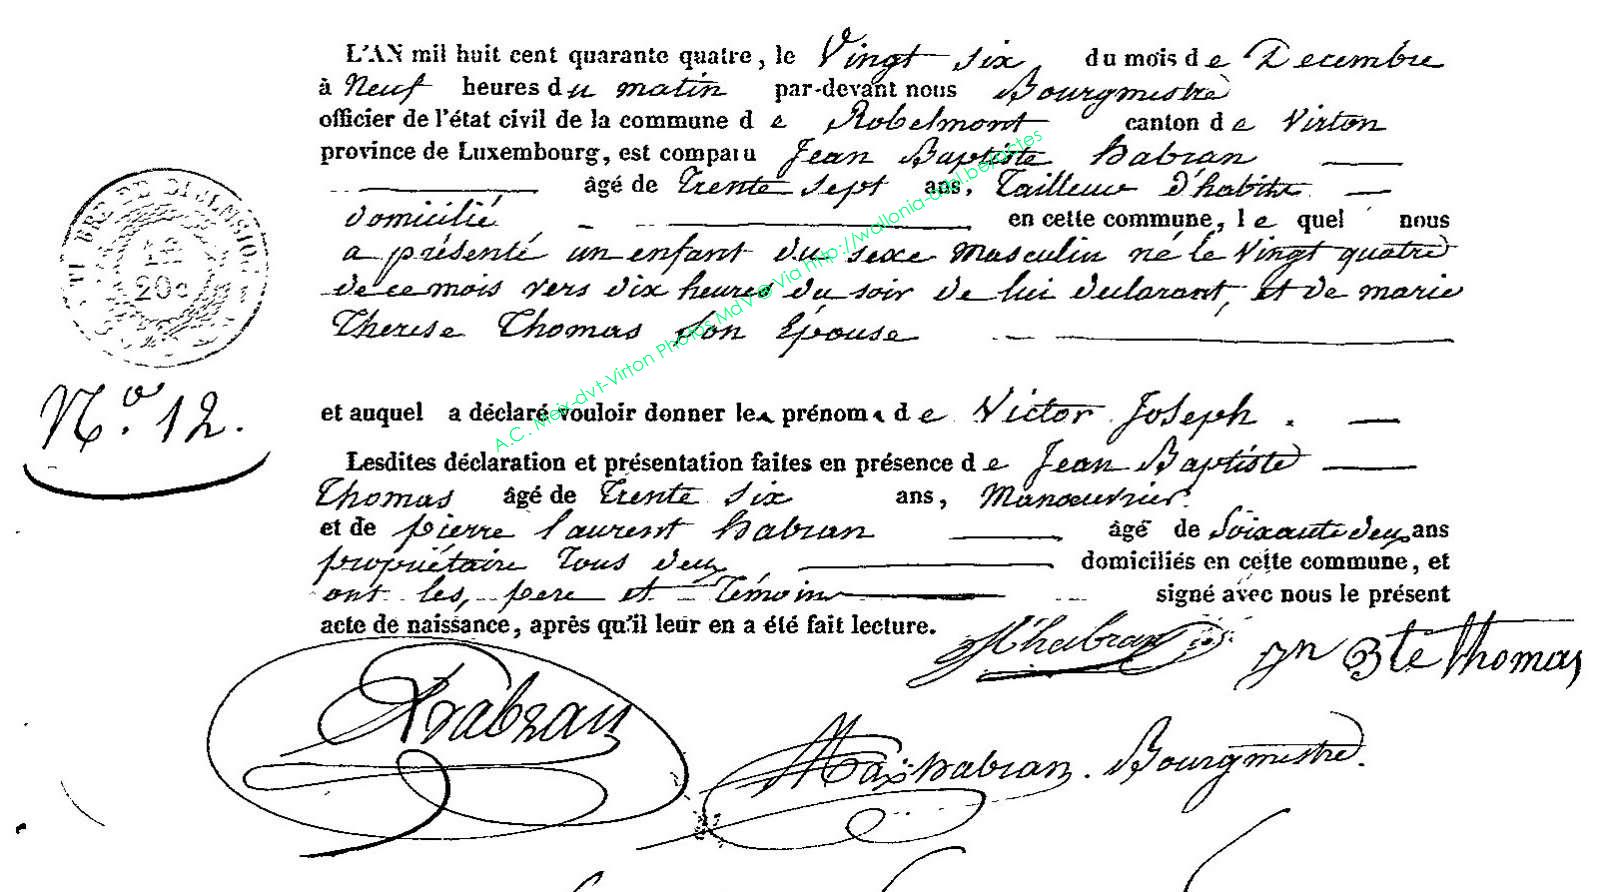 L'AN mil huit cent quarante quatre, le Vingt six du mois de Decembre
à Neuf heures du matin par-devant nous Bourgmestre
officier de l'état civil de la commune de Robelmont canton de Virton
province de Luxembourg, est comparu Jean Baptiste habran
âgé de Trente sept ans, Tailleur d'habits
domicilié en cette commune, le quel nous
a présenté un enfant du sexe masculin né le Vingt quatre
de ce mois vers dix heures du soir de lui declarant, et de marie
Therese Thomas son Epouse
et auquel a déclaré vouloir donner les prénoms de Victor Joseph.
Lesdites déclaration et présentation faites en présence de Jean Baptiste
Thomas âgé de Trente six ans, Manoeuvrier.
et de pierre laurent habran âgé de Soixante deux ans
propriétaire Tous deux domiciliés en cette commune, et
ont les, pere et Témoins signé avec nous le présent
acte de naissance, après qu'il leur en a été fait lecture.
habran
Jn Bte thomas
habran
Max habran. Bourgmestre.
N.º 12.
TIMBRE DE DIMENSION
20c
A.C. Meix-dvt-Virton Photos MdV @ Via http://wallonia-asbl.be/actes